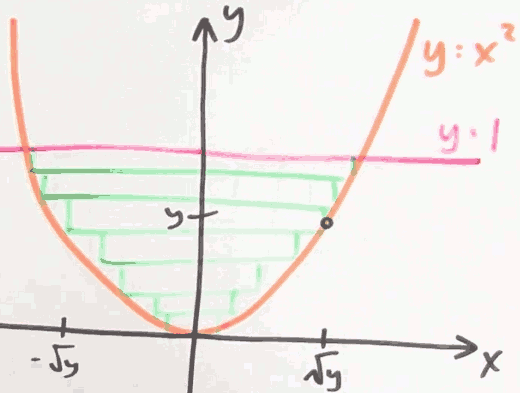 y
y = x²
y = 1
y
-√y
√y
x